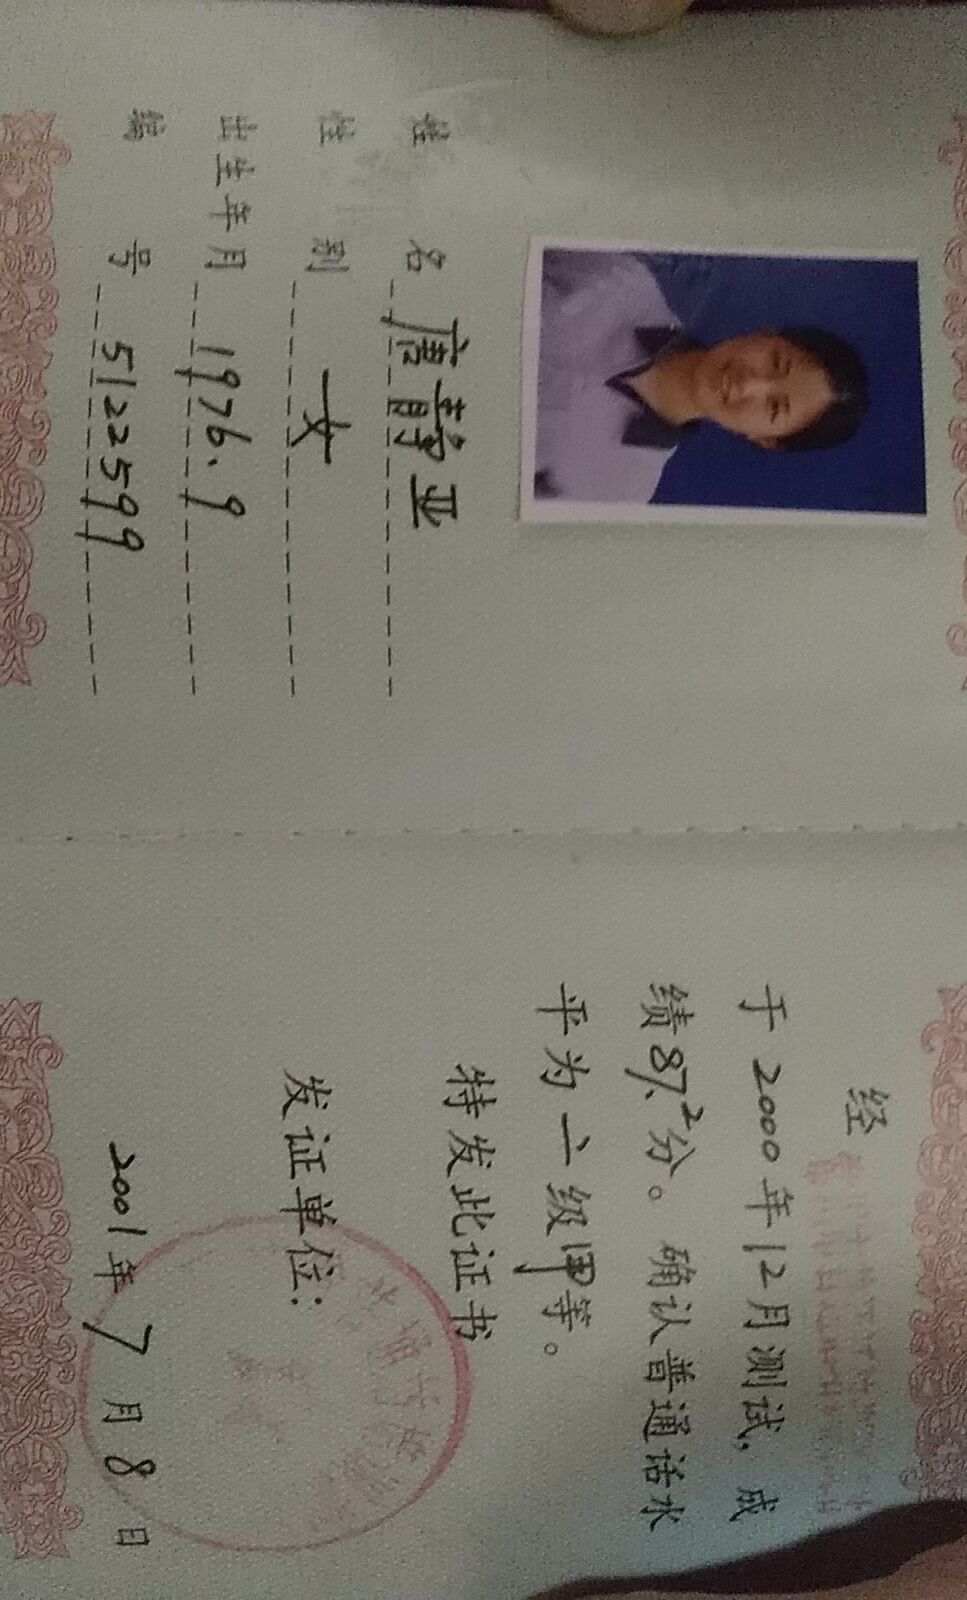 姓 名 唐静亚
性 别 女
出生年月 1976.9
编 号 5122599
经
于 2000 年 12 月测试，成
绩 87.2 分。确认普通话水
平为 二 级 甲 等。
特发此证书
发证单位：
2001 年 7 月 8 日